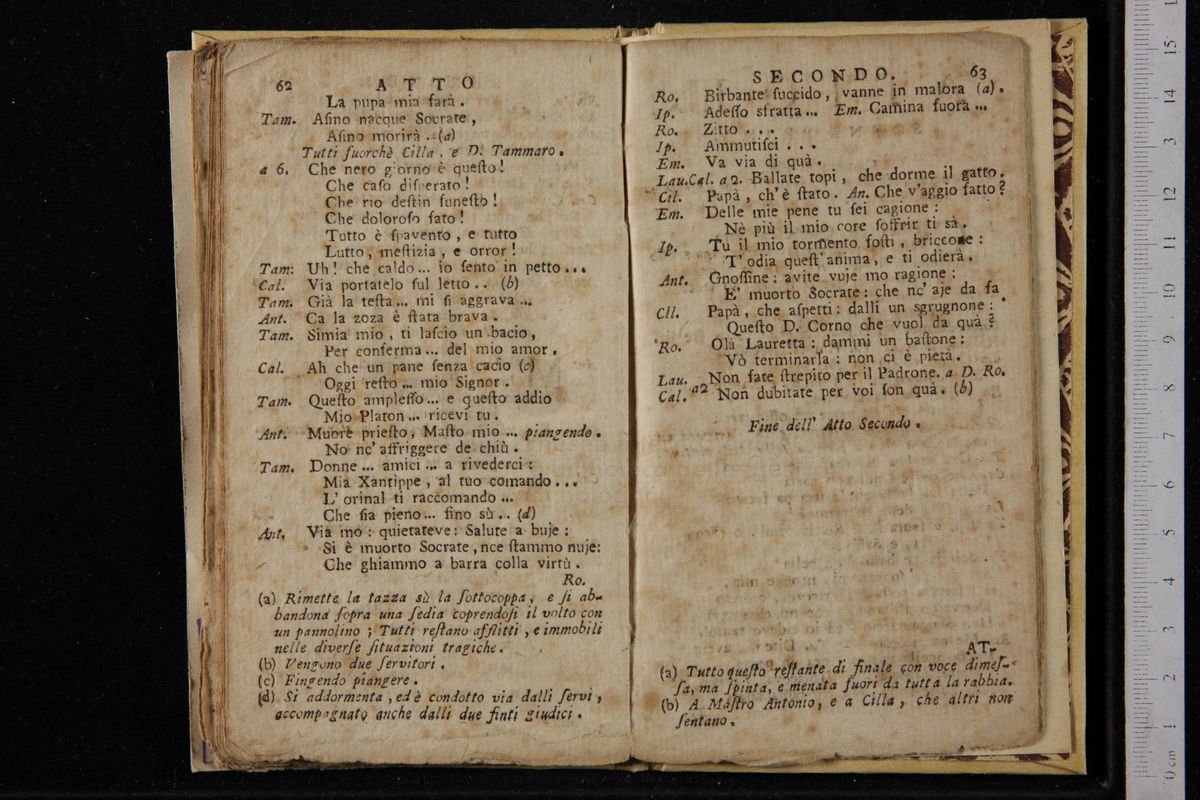 62 ATTO
La pupa mia sarà.
Tam. Asino nacque Socrate,
Asino morirà .. (a)
Tutti fuorchè Cilla, e D. Tammaro.
a 6. Che nero giorno è questo!
Che caso disperato!
Che rio destin funesto!
Che doloroso fato!
Tutto è spavento, e tutto
Lutto, mestizia, e orror!
Tam. Uh! che caldo... io sento in petto...
Cal. Via portatelo sul letto.. (b)
Tam. Già la testa... mi si aggrava...
Ant. Ca la zoza è stata brava.
Tam. Simia mio, ti lascio un bacio,
Per conferma... del mio amor.
Cal. Ah che un pane senza cacio (c)
Oggi resto... mio Signor.
Tam. Questo amplesso... e questo addio
Mio Platon... ricevi tu.
Ant. Muore priesto, Masto mio... piangendo.
No nc' affriggere de chiù.
Tam. Donne... amici... a rivederci:
Mia Xantippe, al tuo comando...
L' orinal ti raccomando...
Che sia pieno... fino sù.. (d)
Ant. Via mo: quietateve: Salute a buje:
Si è muorto Socrate, nce stammo nuje:
Che ghiammo a barra colla virtù.
Ro.
(a) Rimette la tazza sù la sottocoppa, e si ab-
bandona sopra una sedia coprendosi il volto con
un pannolino; Tutti restano afflitti, e immobili
nelle diverse situazioni tragiche.
(b) Vengono due servitori.
(c) Fingendo piangere.
(d) Si addormenta, ed è condotto via dalli servi,
accompagnato anche dalli due finti giudici.
SECONDO. 63
Ro. Birbante succido, vanne in malora (a).
Ip. Adesso sfratta... Em. Camina fuora...
Ro. Zitto...
Ip. Ammutisci...
Em. Va via di quà.
Lau. Cal. a 2. Ballate topi, che dorme il gatto.
Cil. Papà, ch' è stato. An. Che v'aggio fatto?
Em. Delle mie pene tu sei cagione:
Nè più il mio core soffrir ti sà.
Ip. Tu il mio tormento fosti, briccone:
T' odia quest' anima, e ti odierà.
Ant. Gnossine: avite vuje mo ragione:
E' muorto Socrate: che nc' aje da fa
Cil. Papà, che aspetti: dalli un sgrugnone:
Questo D. Corno che vuol da quà?
Ro. Olà Lauretta: dammi un bastone:
Vò terminarla: non ci è pietà.
Lau. Non fate strepito per il Padrone. a D. Ro.
Cal. a2 Non dubitate per voi son quà. (b)
Fine dell' Atto Secondo.
AT-
(a) Tutto questo restante di finale con voce dimes-
sa, ma spinta, e menata fuori da tutta la rabbia.
(b) A Mastro Antonio, e a Cilla, che altri non
sentano.
0 cm 1 2 3 4 5 6 7 8 9 10 11 12 13 14 15